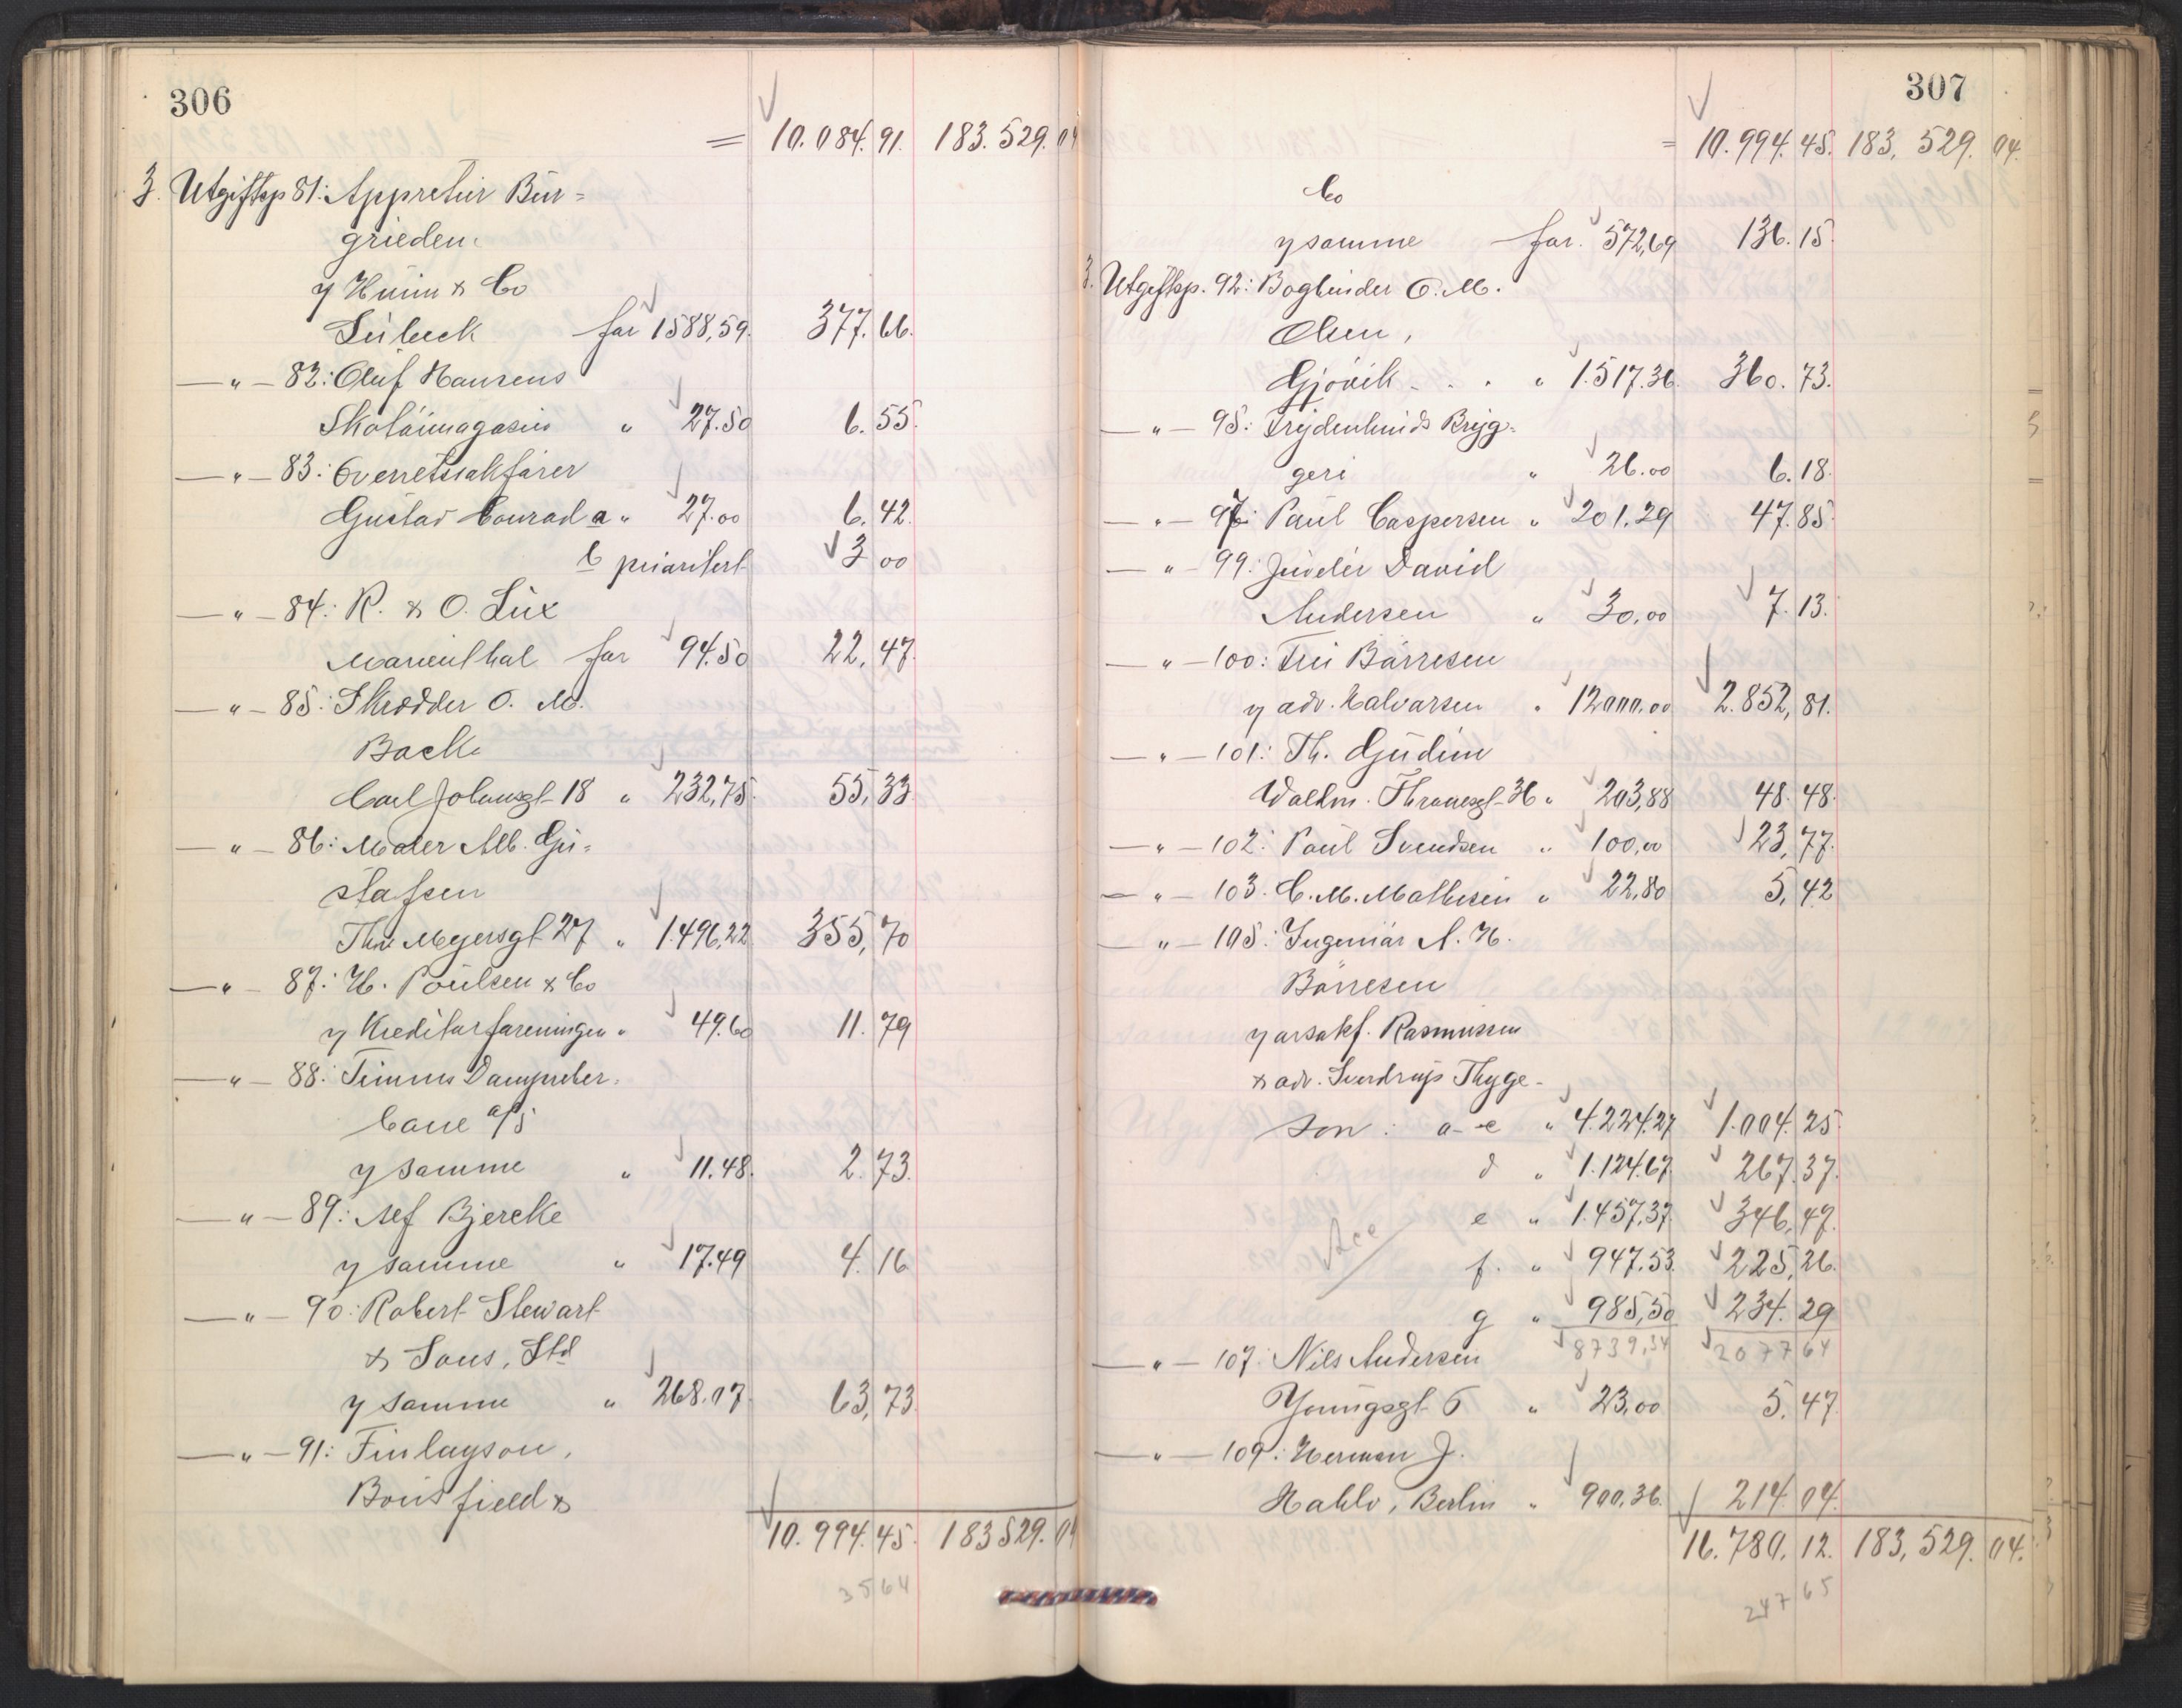 306
= 10.084. 91. 183.529. 04
3. Utgiftsp 81: Appretur Bür=
grieden.
v/ Hüim & Co
Lübeck for 1588,59. 377. 66.
—"— 82: Oluf Hansens
Skotöimagasin " 27.50 6. 55.
—"— 83: Overretssakförer
Gustav Conrad a " 27.00 6. 42.
b prioritert 3 00
—"— 84: R. & O. Lux
Marienthal for 94.50 22, 47.
—"— 85: Skrædder O. M.
Back.
Carl Johansgt 18 " 232,75. 55, 33.
—"— 86: Maler Alb. Gu=
stafsen
Thv Meyersgt 27 " 1.496,22 355, 70
—"— 87: H. Poulsen & Co
v/ Kreditorforeningen " 49.60 11. 79
—"— 88: Timms Dampweber.
Cane a/s
v/ samme " 11.48. 2. 73.
—"— 89: Alf Bjercke
v/ samme " 17.49 4. 16
—"— 90: Robert Stewart
& Sons, Ltd
v/ samme " 268.07. 63, 73
—"— 91: Finlayson,
Bousfield &
10.994. 45. 183 529. 04
3564
307
= 10.994. 45. 183, 529. 04.
Co
v/ samme for. 572,69 136. 15.
3. Utgiftsp. 92: Bogbinder O. M.
Olsen,
Gjövik . . . " 1.517.36. 360. 73.
—"— 95: Frydenlunds Bryg=
geri " 26.00 6. 18.
—"— 97: Paul Caspersen " 201.29 47. 85
—"— 99: Juvelér David
Andersen " 30,00 7. 13.
—"— 100: Fru Börresen
v/ adv. Halvorsen " 12000.00 2.852, 81.
—"— 101: Th. Gudim
Waldm. Thranesgt 36 " 203,88 48. 48.
—"— 102: Paul Svendsen " 100,00 23, 77.
—"— 103. C. M. Mathisen " 22,80 5, 42
—"— 105: Ingeniör A. H.
Börresen
v/ orsakf. Rasmussen
& adv. Sverdrup Thyge-
son: a-c " 4.224.27 1.004. 25.
d " 1.124.67. 267. 37.
e " 1.457,37. 346, 47.
f. " 947.53. 225, 26.
g " 985,50 234. 29
8739,34 2077 64
—"— 107: Nils Andersen
Youngsgt 6 " 23,00 5. 47.
—"— 109: Herman J.
Hahlo, Berlin " 900,36. 214. 04.
16.780, 12. 183, 529. 04.
247 65